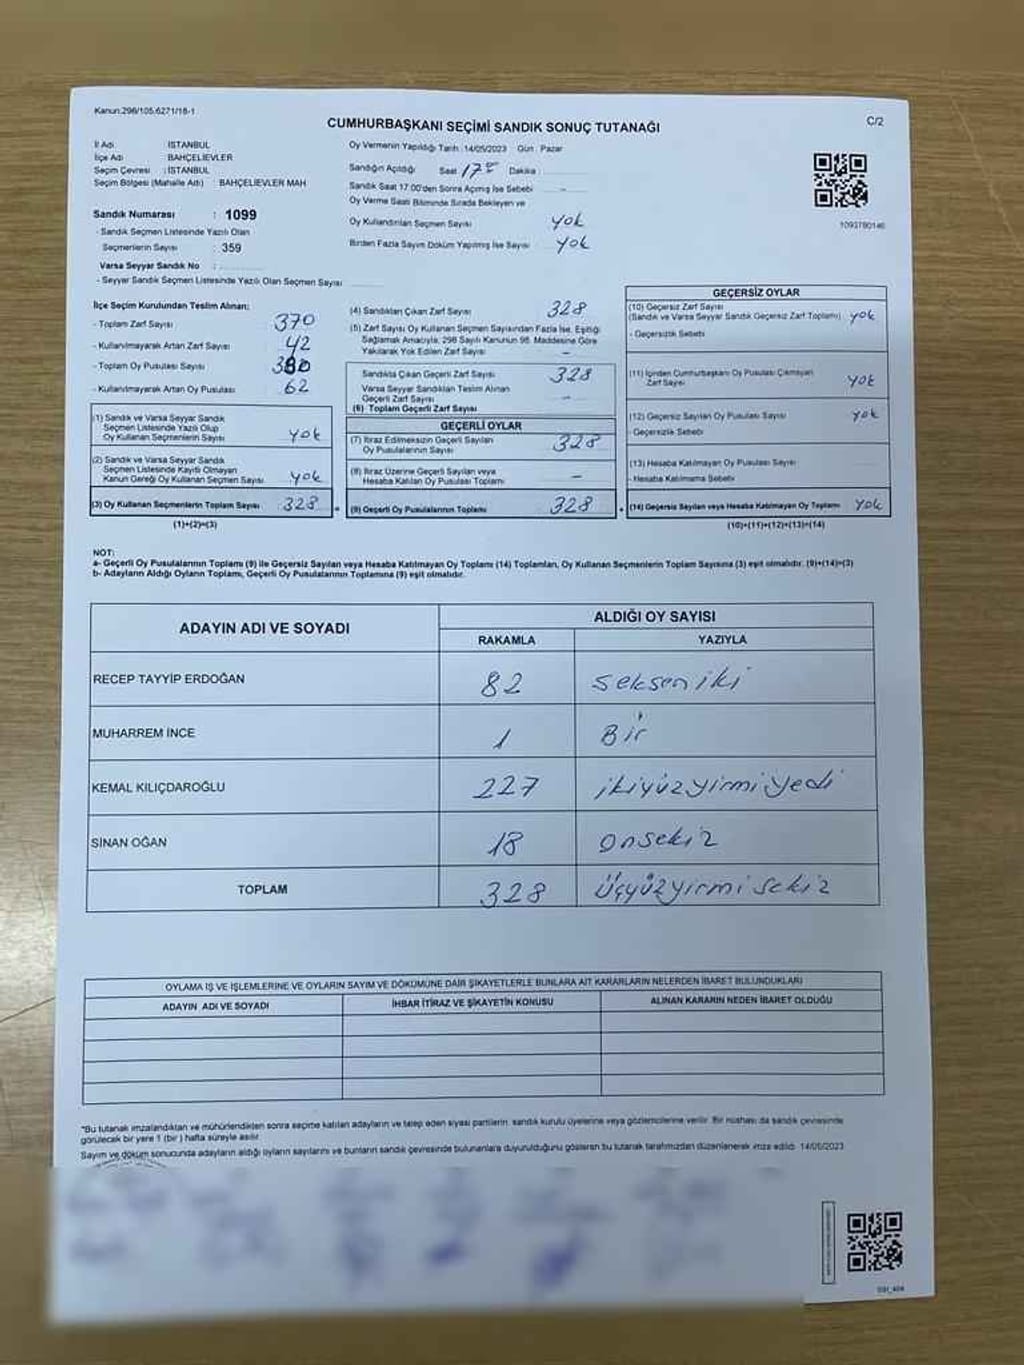 Kanun.298/105,6271/18-1
CUMHURBAŞKANI SEÇİMİ SANDIK SONUÇ TUTANAĞI
C/2
İl Adı İSTANBUL
İlçe Adı BAHÇELİEVLER
Seçim Çevresi : İSTANBUL
Seçim Bölgesi (Mahalle Adı) BAHÇELİEVLER MAH
Oy Vermenin Yapıldığı Tarih :14/05/2023 Gün : Pazar
Sandığın Açıldığı Saat 17 Dakika
Sandık Saat 17.00'den Sonra Açmış İse Sebebi –
Oy Verme Saati Bitiminde Sırada Bekleyen ve
Oy Kullandırılan Seçmen Sayısı yok
Birden Fazla Sayım Döküm Yapılmış İse Sayısı yok
1093780146
Sandık Numarası : 1099
- Sandık Seçmen Listesinde Yazılı Olan
Seçmenlerin Sayısı : 359
Varsa Seyyar Sandık No :
- Seyyar Sandık Seçmen Listesinde Yazılı Olan Seçmen Sayısı
İlçe Seçim Kurulundan Teslim Alınan:
- Toplam Zarf Sayısı 370
- Kullanılmayarak Artan Zarf Sayısı 42
- Toplam Oy Pusulası Sayısı
- Kullanılmayarak Artan Oy Pusulası 62
(1) Sandık ve Varsa Seyyar Sandık
Seçmen Listesinde Yazılı Olup
Oy Kullanan Seçmenlerin Sayısı yok
(2) Sandık ve Varsa Seyyar Sandık
Seçmen Listesinde Kayıtlı Olmayan
Kanun Gereği Oy Kullanan Seçmen Sayısı yok
(3) Oy Kullanan Seçmenlerin Toplam Sayısı 328
(1)+(2)=(3)
(4) Sandıktan Çıkan Zarf Sayısı 328
(5) Zarf Sayısı Oy Kullanan Seçmen Sayısından Fazla İse, Eşitliği
Sağlamak Amacıyla, 298 Sayılı Kanunun 98. Maddesine Göre
Yakılarak Yok Edilen Zarf Sayısı –
Sandıkta Çıkan Geçerli Zarf Sayısı 328
Varsa Seyyar Sandıktan Teslim Alınan
Geçerli Zarf Sayısı –
(6) Toplam Geçerli Zarf Sayısı
GEÇERLİ OYLAR
(7) İtiraz Edilmeksizin Geçerli Sayılan
Oy Pusulalarının Sayısı 328
(8) İtiraz Üzerine Geçerli Sayılan veya
Hesaba Katılan Oy Pusulası Toplamı –
(9) Geçerli Oy Pusulalarının Toplamı 328
GEÇERSİZ OYLAR
(10) Geçersiz Zarf Sayısı
(Sandık ve Varsa Seyyar Sandık Geçersiz Zarf Toplamı) yok
- Geçersizlik Sebebi
(11) İçinden Cumhurbaşkanı Oy Pusulası Çıkmayan
Zarf Sayısı yok
(12) Geçersiz Sayılan Oy Pusulası Sayısı yok
- Geçersizlik Sebebi
(13) Hesaba Katılmayan Oy Pusulası Sayısı
- Hesaba Katılmama Sebebi
(14) Geçersiz Sayılan veya Hesaba Katılmayan Oy Toplamı yok
(10)+(11)+(12)+(13)=(14)
NOT:
a- Geçerli Oy Pusulalarının Toplamı (9) ile Geçersiz Sayılan veya Hesaba Katılmayan Oy Toplamı (14) Toplamları, Oy Kullanan Seçmenlerin Toplam Sayısına (3) eşit olmalıdır. (9)+(14)=(3)
b- Adayların Aldığı Oyların Toplamı, Geçerli Oy Pusulalarının Toplamına (9) eşit olmalıdır.
ADAYIN ADI VE SOYADI
ALDIĞI OY SAYISI
RAKAMLA YAZIYLA
RECEP TAYYİP ERDOĞAN 82 seksen iki
MUHARREM İNCE 1 Bir
KEMAL KILIÇDAROĞLU 227 ikiyüzyirmiyedi
SİNAN OĞAN 18 onsekiz
TOPLAM 328 Üçyüzyirmisekiz
OYLAMA İŞ VE İŞLEMLERİNE VE OYLARIN SAYIM VE DÖKÜMÜNE DAİR ŞİKAYETLERLE BUNLARA AİT KARARLARIN NELERDEN İBARET BULUNDUKLARI
ADAYIN ADI VE SOYADI İHBAR İTİRAZ VE ŞİKAYETİN KONUSU ALINAN KARARIN NEDEN İBARET OLDUĞU
"Bu tutanak imzalandıktan ve mühürlendikten sonra seçime katılan adayların ve talep eden siyasi partilerin, sandık kurulu üyelerine veya gözlemcilerine verilir. Bir nüshası da sandık çevresinde
görülecek bir yere 1 (bir) hafta süreyle asılır.
Sayım ve döküm sonucunda adayların aldığı oyların sayılarını ve bunların sandık çevresinde bulunanlara duyurulduğunu gösteren bu tutanak tarafımızdan düzenlenerek imza edildi. 14/05/2023